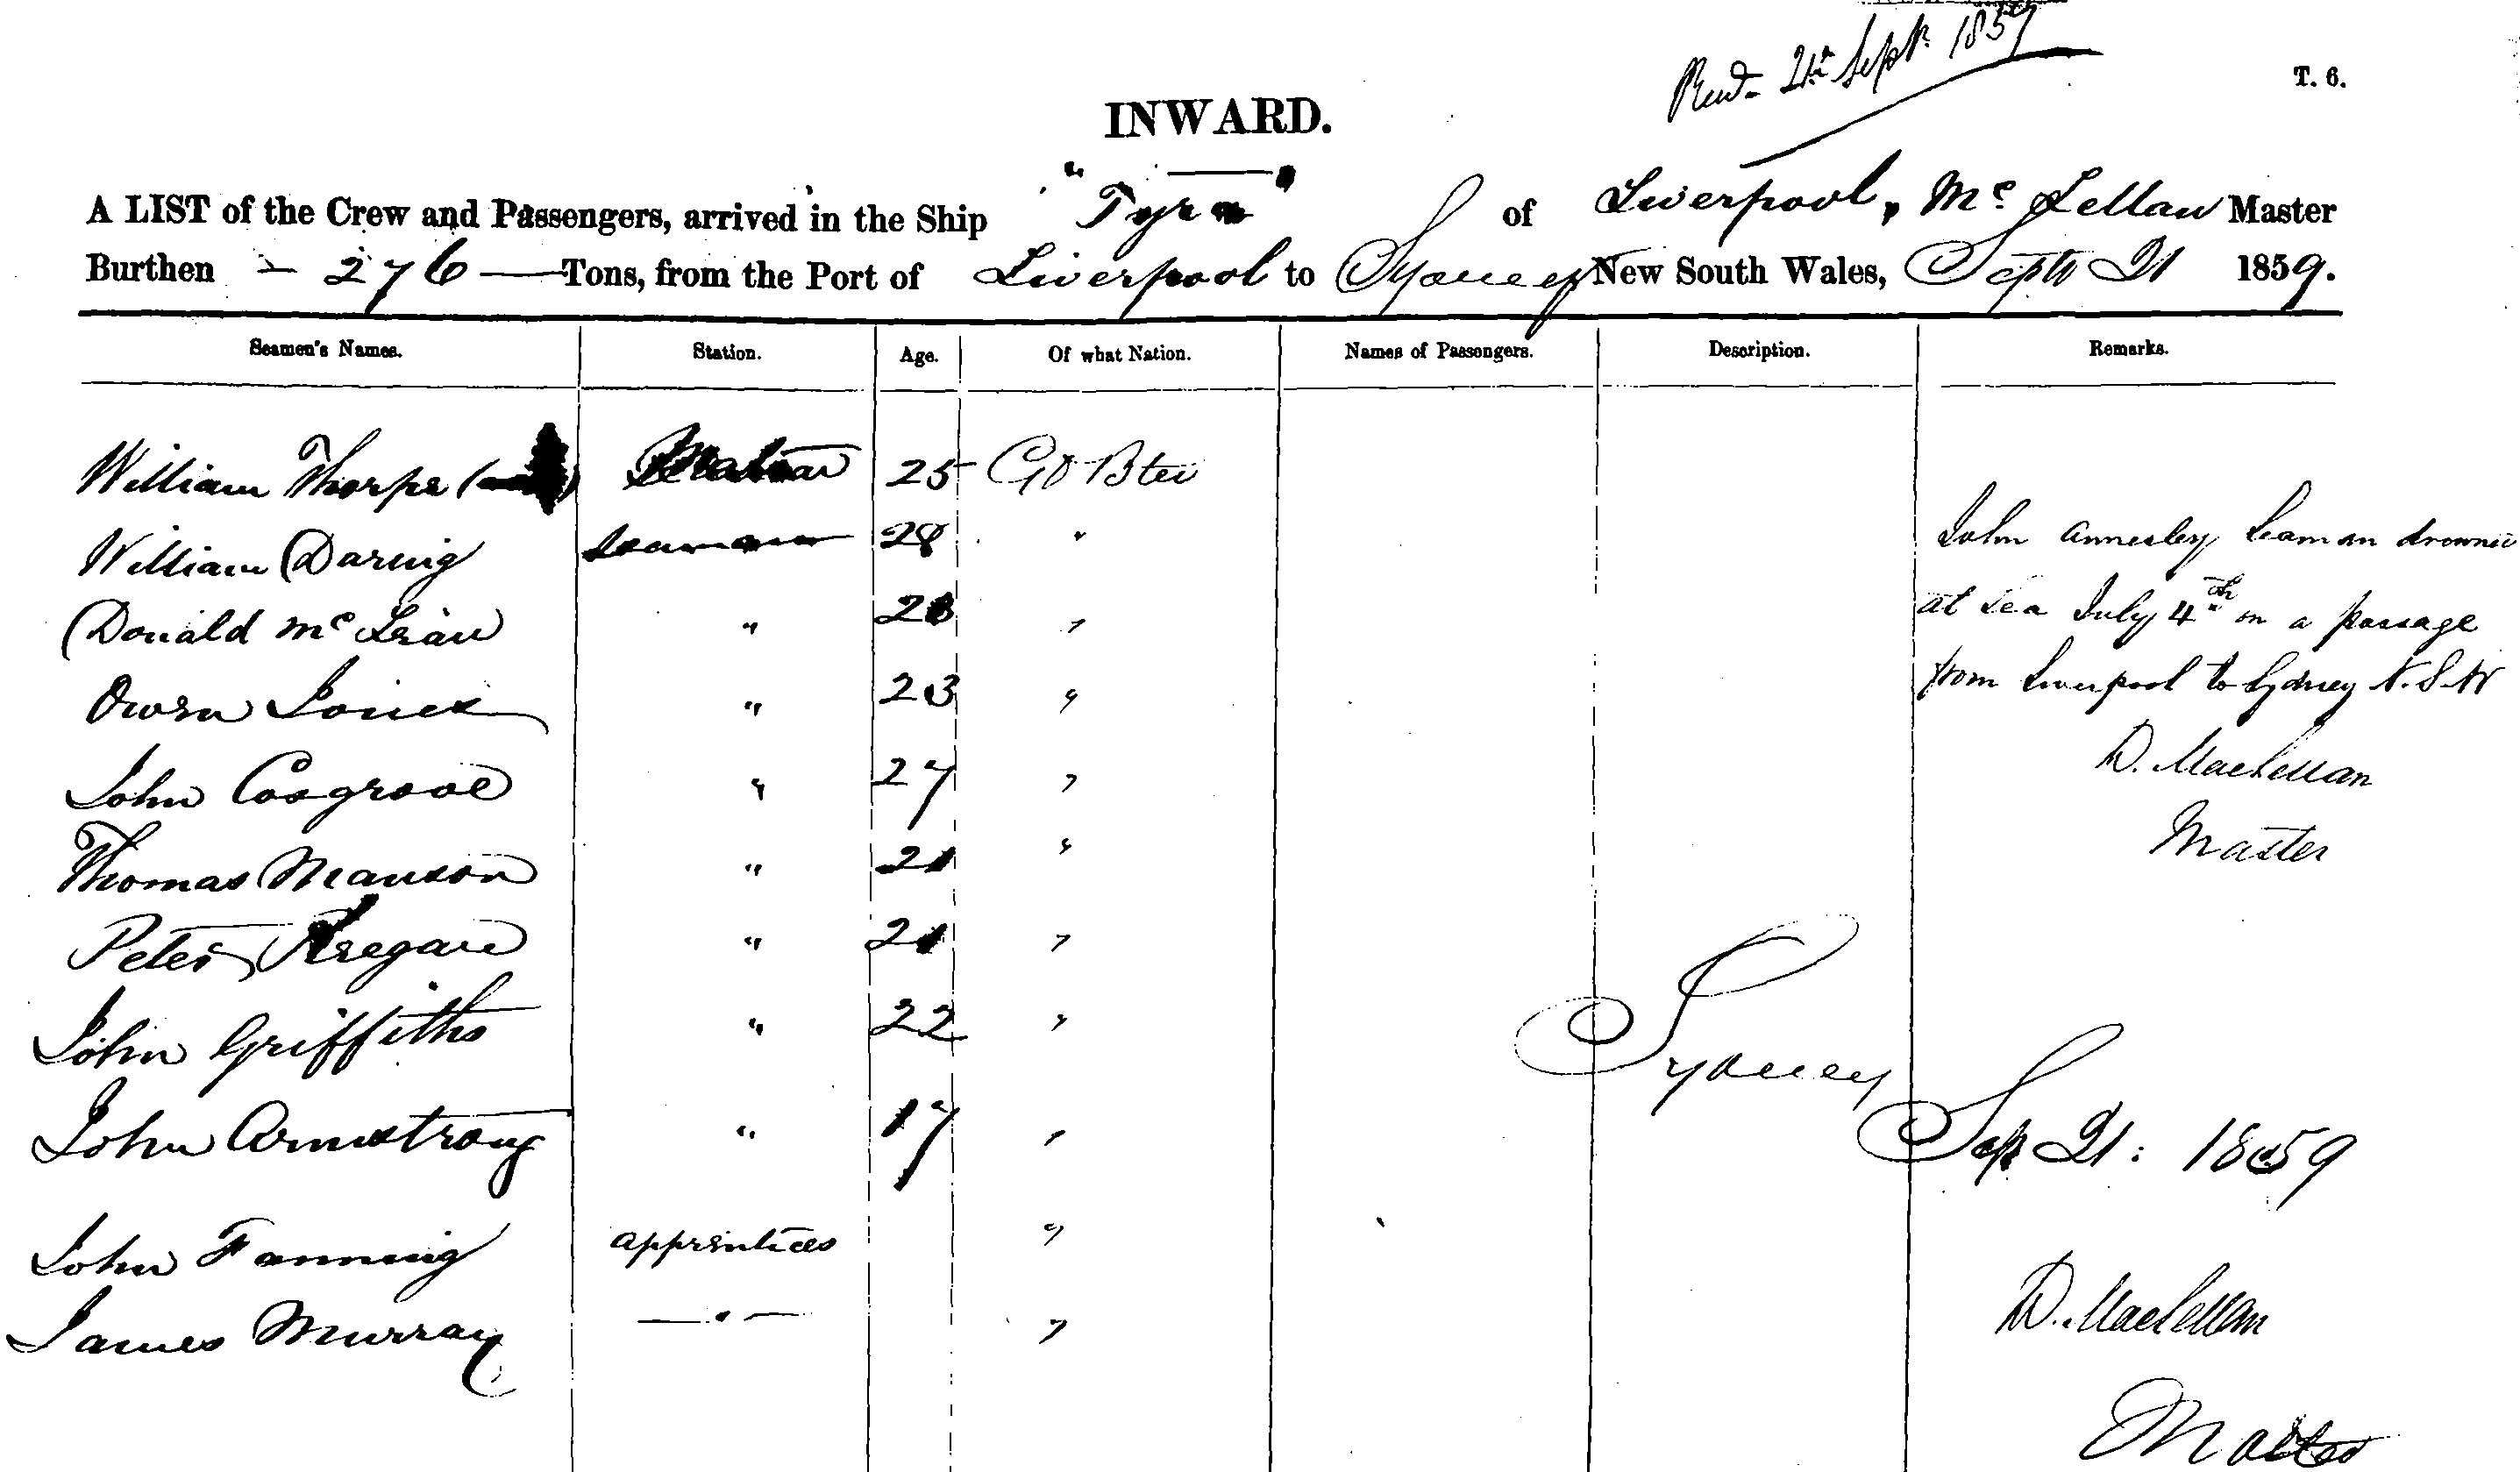 Recd. 21st Sept. 1859
T. 6.
INWARD.
A LIST of the Crew and Passengers, arrived in the Ship "Tyra" of Liverpool, Mc Lellan Master
Burthen 276 Tons, from the Port of Liverpool to Sydney New South Wales, Septr 21 1859.
Seamen's Names. Station. Age. Of what Nation. Names of Passengers. Description. Remarks.
William Thorpe 25 Gt Btn
William Daring Seaman 28 "
John Annesley Seaman drowned
Donald Mc Lean " "
at Sea July 4th on a passage
Owen Jones " 23 "
from Liverpool to Sydney N. S. W
John Cosgrove " 27 "
D. MacLellan
Master
Thomas Manson " 21 "
Peter " 21 "
John Griffiths " 22 "
Sydney
John Armstrong " 17 "
Sep 21: 1859
John Fanning apprentices "
James Murray " "
D. MacLellan
Master